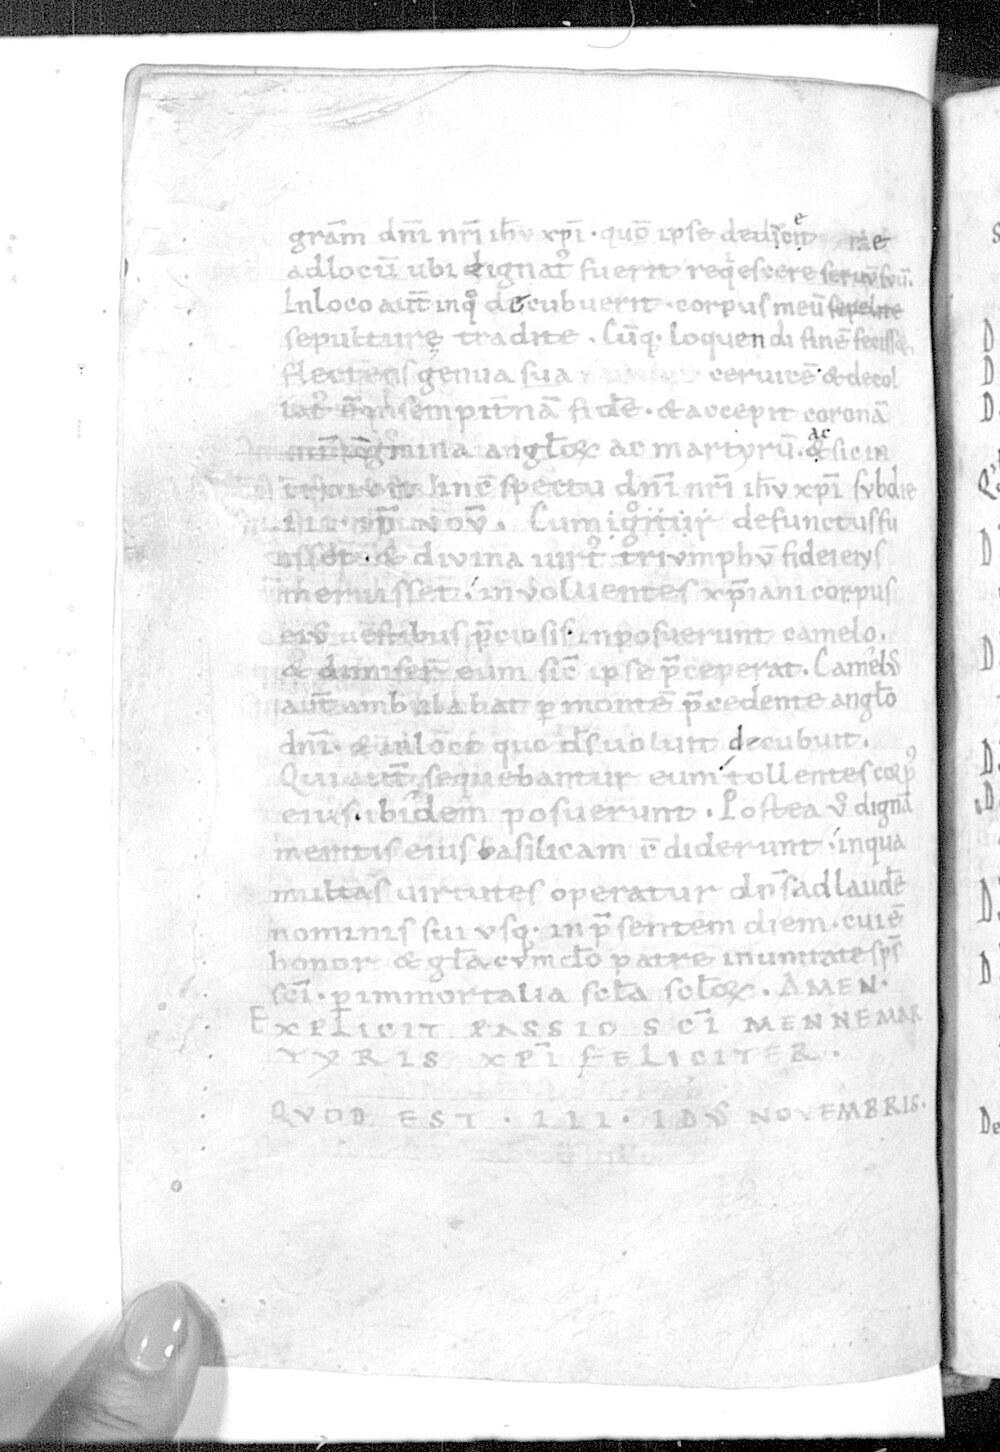 grām dn̄i nr̄i ih̄u xp̄i · quō ipse deduc̄
ad locū ubi dignat᷒ fuerit reqescere seruū suū.
In loco aut̄ inq᷒ decubuerit · corpus meū sepelite
sepulturę tradite . Cūq· loquendi finē
flectens genua sua ceruicē & decol
sempit̄nā fidē · & accepit coronā
angl̄oꝝ ac martyrū · ac sic in
in c̄spectu dn̄i nr̄i ih̄u xp̄i sub die
NOV̄ . Cum igitur defunctus fu
isset · & divina uirt᷒ triumphū fidei eius
meruisset · inuoluentes xp̄iani corpus
eiū uestibus p̄ciosis · inposuerunt camelo .
& dimiser̄ eum sic̄ ipse p̄ceperat . Camelū
aut̄ ambulabat p̱ montē p̄cedente angl̄o
dn̄i · & in loco quo d̄s uoluit decubuit .
Qui aut̄ sequebantur eum tollentes corp᷒
eius · ibidem posuerunt . Postea v̊ dignā
meritis eius basilicam c̄diderunt · in qua
multas uirtutes operatur dn̄s ad laudē
nominis sui usq· in p̄sentem diem · cui ē
honor & gl̄a cum d̄o patre in unitate sp̄s
sc̄i · p̱ immortalia scl̄a scl̄oꝝ . AMEN ·
EXPLICIT PASSIO SC̄I MENNE MAR
TYRIS XP̄I FELICITER .
QVOD EST · III · IDV̄S NOVEMBRIS .